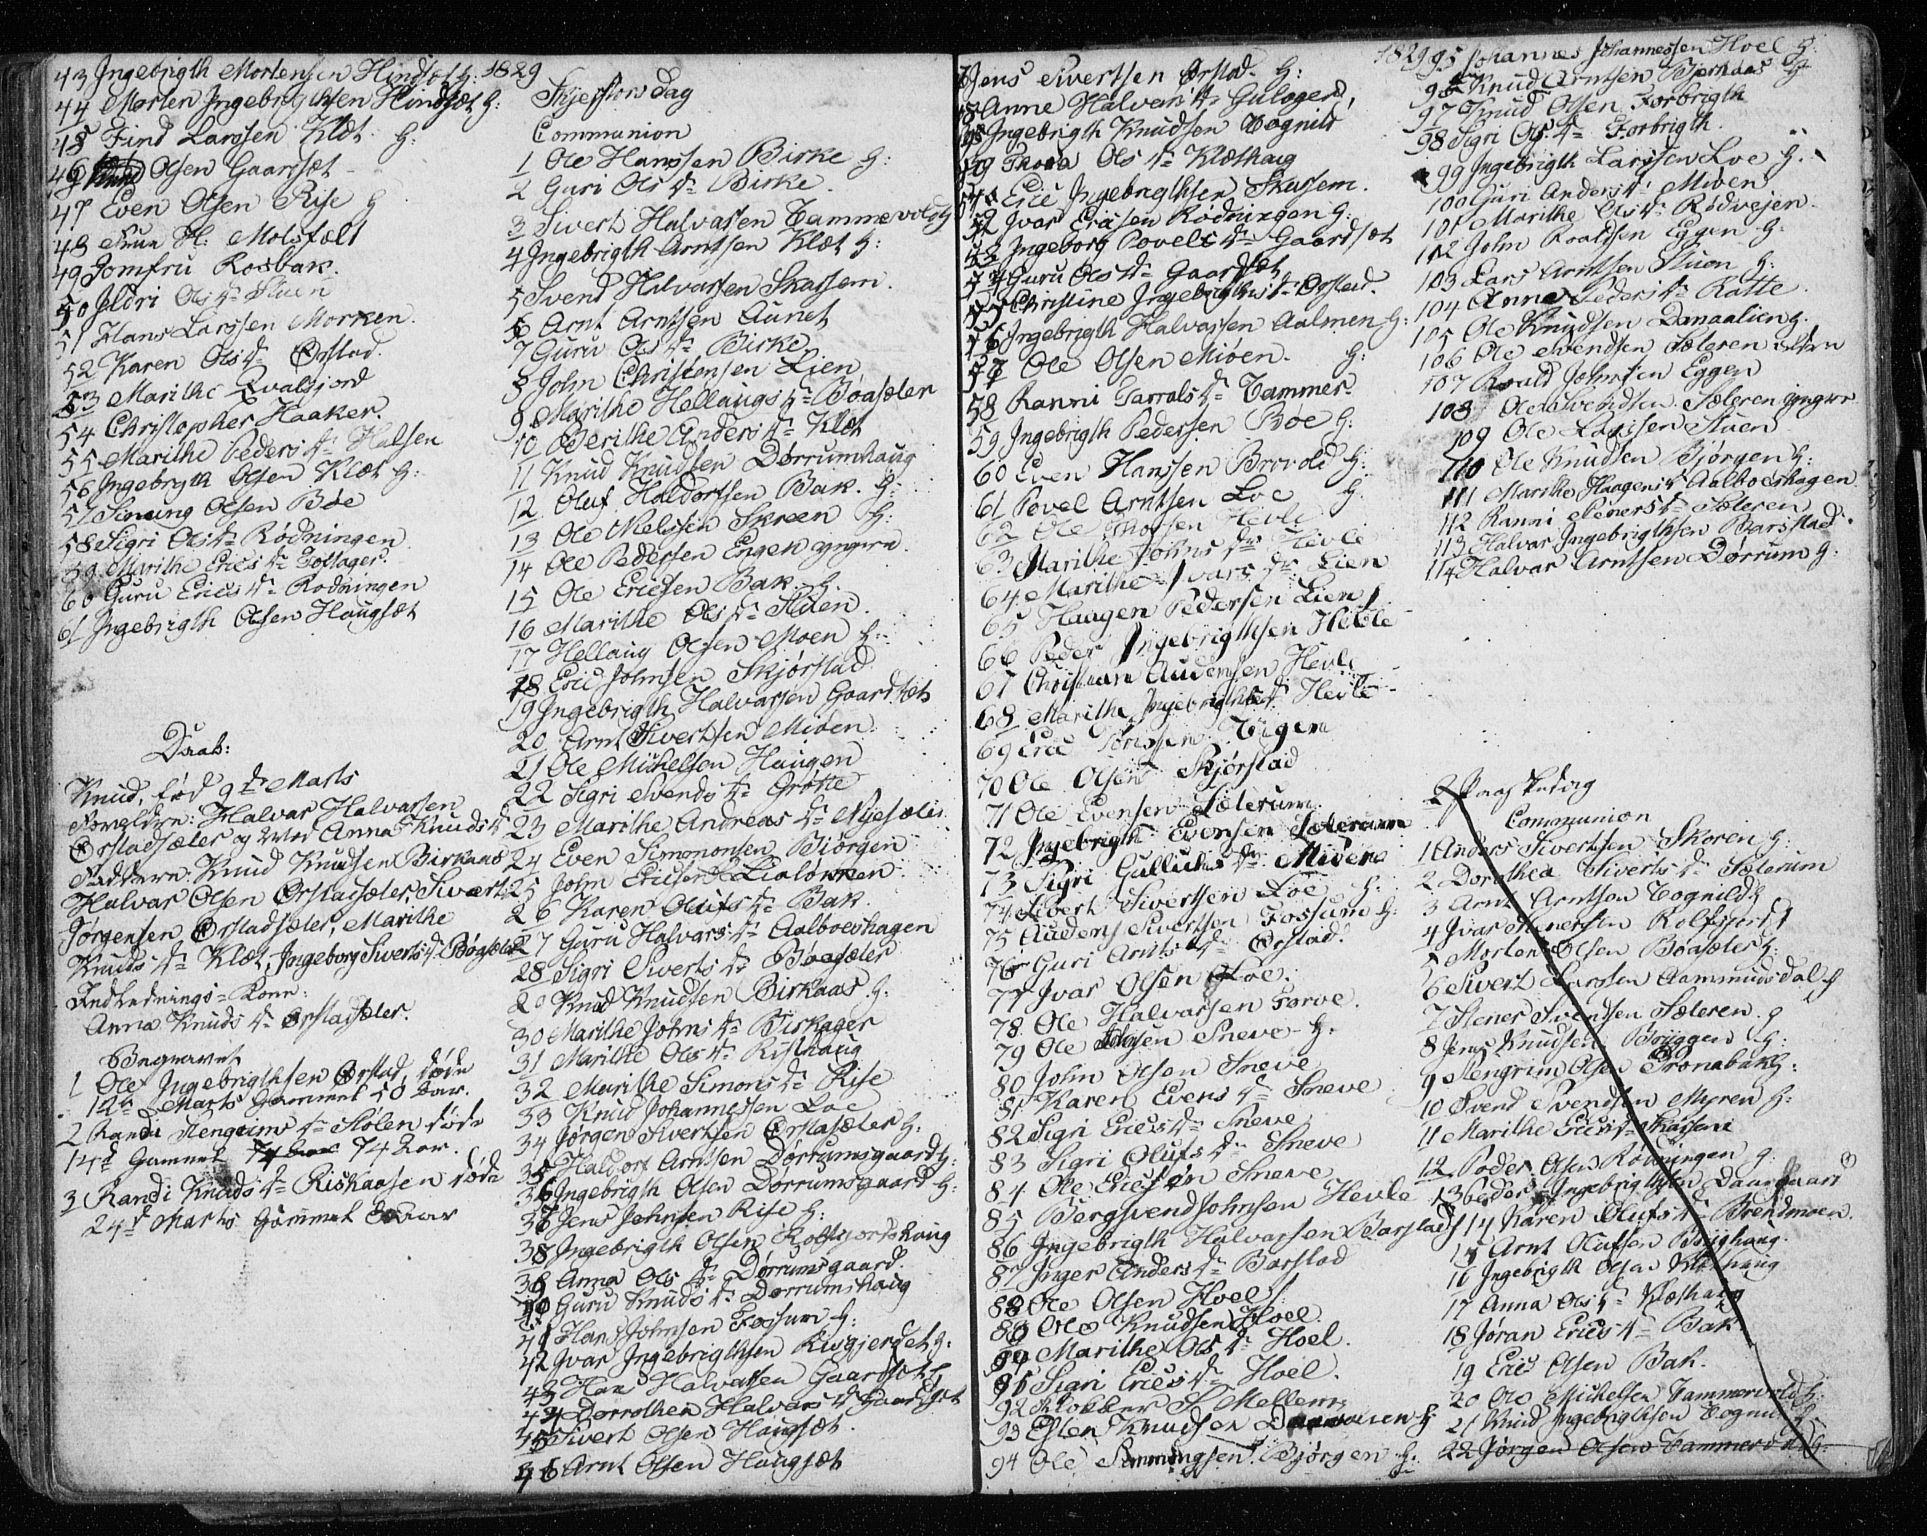 43 Ingebrigth Mortensen Hindset H: 1829
44 Morten Ingebrigthsen Hindset H:
45 Find Larssen Klæt H:
46 Olsen Gaardsæt
47 Even Olsen Rise H
48 Fruе H: Molsfælt
49 Jomfru Rosbak.
50 Jldri Ols dr Stuen
51 Hans Larssen Morken.
52 Karen Ols dr Ørstad.
53 Marithe Qvalsjord
54 Christopher Haaker.
55 Marithe Peders dr Halsen
56 Ingebrigth Olsen Klæt H:
57 Simming Olsen Böe
58 Sigri Ols dr Rødningen
59 Marithe Erics dr Toltager.
60 Guru Erics dr Rodningen
61 Ingebrigth Olsen Haugsæt
Daab:
Knud, fød 9de Marts
Foreldre: Halvar Halvarsen
Ørstadsæter og Anna Knuds dr
Faddere: Knud Knudsen Birkaas
Halvar Olsen Ørstadsæter, Sivert
Jørgensen Ørstadsæter, Marithe
Knuds dr Klæt, Ingeborg Siverts dr Böasæter
Indlednings-Kone:
Anna Knuds dr Ørstadsæter.
Begravet
1 Ole Ingebrigthsen Ørstad, døde
12te Marts Gammel 50 aar.
2 Randi Stengrims dr Stölen døde
14d Gammel 74 aar.
3 Randi Knuds dr Riskaasen døde
24d Marts Gammel aar
Skjertorsdag
Communion
1 Ole Hanssen Birke H:
2 Guri Ols dr Birke.
3 Sivert Halvarsen Tammervold H
4 Ingebrigth Arntsen Klæt H:
5 Svend Halvarsen Skarsem.
6 Arnt Arntsen Aunet
7 Guru Ols dr Birke
8 John Christensen Lien
9 Marithe Hellaugs dr Böasæter
10 Berithe Anders dr Klæt
11 Knud Knudsen Dørrumhaug
12 Oluf Haldorsen Bak. H:
13 Ole Nelssen Skreen H:
14 Ole Pedersen Engen yngere.
15 Ole Ericsen Bak H
16 Marithe Ols dr Stuen.
17 Hellaug Olsen Moen H:
18 Eric Johnsen Skjørstad
19 Ingebrigth Halvarsen Gaardsæt
20 Arnt Sivertsen Miöen.
21 Ole Michelsen Haugen
22 Sigri Svends dr Grøtte
23 Marithe Andreas dr Nyesæter
24 Even Simonsen Biørgen
25 John Ericsen Lialøkken
26 Karen Olufs dr Bak.
27 Guru Halvars dr Aalboeshagen
28 Sigri Siverts dr Böasæter
29 Knud Knudsen Birkaas H:
30 Marithe Johns dr Birkager
31 Marithe Ols dr Risthaug
32 Marithe Simons dr Rise
33 Knud Johannessen Loe
34 Jørgen Sivertsen Ørstasæter H:
35 Haldor Arntsen Dørrumsgaard H:
36 Ingebrigth Olsen Dørrumsgaard H:
37 Jens Johnsen Rise H:
38 Ingebrigth Olsen Rolfsjordshaug
39 Anna Ols dr Dørrumsgaard.
40 Guru Knuds dr Dorrumshaug
41 Hans Johnsen Fossum H:
42 Ivar Ingebrigthsen Risgjerdet H:
43 Halvarsen Gaardsæt H
44 Dorrothea Halvars dr Gaardsæt
45 Sivert Olsen Haugsæt
46 Arnt Olsen Haugsæt
Jens Sivertsen Ørstad. H:
Anne Halvars dr Gulager,
Ingebrigth Knudsen Tognild
Thora Ols dr Klæthaug
Eric Ingebrigthsen Skarsem.
Ivar Ericsen Rodningen H:
Ingeborg Povels dr Gaardsæt
54 Guru Ols dr Gaardsæt
55 Christine Ingebrigths dr Ørstad.
56 Ingebrigth Halvarsen Aalmen H:
57 Ole Olsen Miöen. H:
58 Ranni Tarrals dr Tammer-
59 Ingebrigth Pedersen Boe H:
60 Even Hanssen Brovold H:
61 Povel Arntsen Loe H.
62 Ole Hevle
63 Marithe Johns dr Hevle
64 Marithe Ivars dr Lien
65 Haagen Pedersen Lien H
66 Peder Ingebrigthsen Hevle
67 Christian Audensen Hevle
68 Marithe Ingebrigths dr Hevle
69 Eric Vigen
70 Ole Olsen Skjørstad
71 Ole Evensen Sæterum
72 Ingebrigth Evensen Sæterum
73 Sigri Gulliks dr Miöen
74 Sivert Sivertsen Loe H:
75 Audens Sivertsen Fossum H:
76 Guri Arnts dr Ørstad.
77 Ivar Olsen Loe.
78 Ole Halvarsen Farve.
79 Ole Olsen Sneve H:
80 John Olsen Sneve
81 Karen Evens dr Sneve
82 Sigri Erics dr Sneve
83 Sigri Olufs dr Sneve
84 Ole Ericsen Sneve
85 Bergsvend Johnsen Hevle
86 Ingebrigth Halvarsen Barstad H
87 Inger Anders dr Barstad
88 Ole Olsen Hoel H
89 Ole Knudsen Hoel.
90 Marithe Ols dr Hoel.
91 Sigri Erics dr Hoel.
92 Klokker S Mellem
93 Esten Knudsen H
94 Ole Simmingsen Bjørgen H:
1829 95 Johannes Johannessen Hoel H:
96 Knud Arntsen Bjerkaas H
97 Knud Olsen Forbrigth
98 Sigri Ols dr Forbrigth.
99 Ingebrigth Larssen Loe H.
100 Guri Anders dr Miöen
101 Marithe Ols dr Rødvejen.
102 John Roaldsen Eggen H:
103 Lars Arntsen Stuen H:
104 Anne Peders dr Ratte.
105 Ole Knudsen Danaalien H.
106 Ole Svendsen Sæteren
107 Roald Johnsen Eggen
108 Ole Svendsen Sæteren yngere
109 Ole Larssen Stuen
110 Ole Knudsen Bjørgen H:
111 Marithe Haagens dr Aalboeshagen
112 Ranni Steners dr Sæteren
113 Halvar Ingebrigthsen Barstad.
114 Halvar Arntsen Dørrum H:
2 Paaskedag
Communion
1 Anders Sivertsen Skoren H:
2 Dorothea Siverts dr Sæterum
3 Arnt Arntsen Tognild H
4 Ivar Stenersen Rolfsjord H
5 Morten Olsen Böasæter H:
6 Sivert Larssen Aammundsdal H
7 Stener Svendsen Sæteren H
8 Jens Knudsen Bryggen H:
9 Stengrim Olsen Tronabak H:
10 Svend Svendsen Myren H:
11 Marithe Erics dr Skarsem
12 Peder Olsen Rødningen H:
13 Peder Ingebrigthsen
14 Karen Olufs dr Brendmoen
15 Arnt Olufsen Brighaug.
16 Ingebrigth Olsen Klæthaug
17 Anna Ols dr Klæthaug
18 Jøran Erics dr Bak
19 Eric Olsen Bak.
20 Ole Michelsen Tammervold H:
21 Knud Ingebrigthsen Tognild H:
22 Jørgen Olsen Tammervold H: